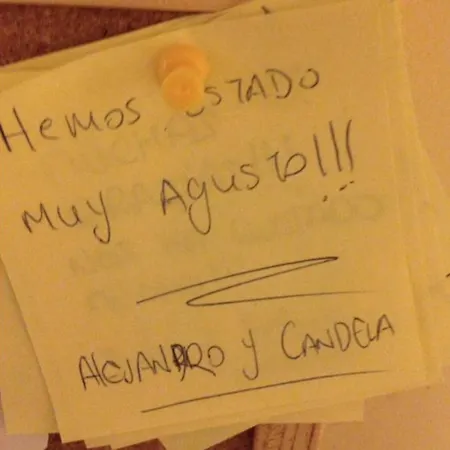 Hemos ESTADO
muy Agusto!!!
ALEJANDRO y CANDELA